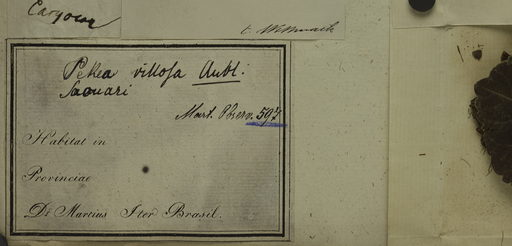 Caryocar
Pekea villosa Aubl.
Saouari
Mart. Observ. 597
Habitat in
Provinciae
Dr Martius Iter Brasil.